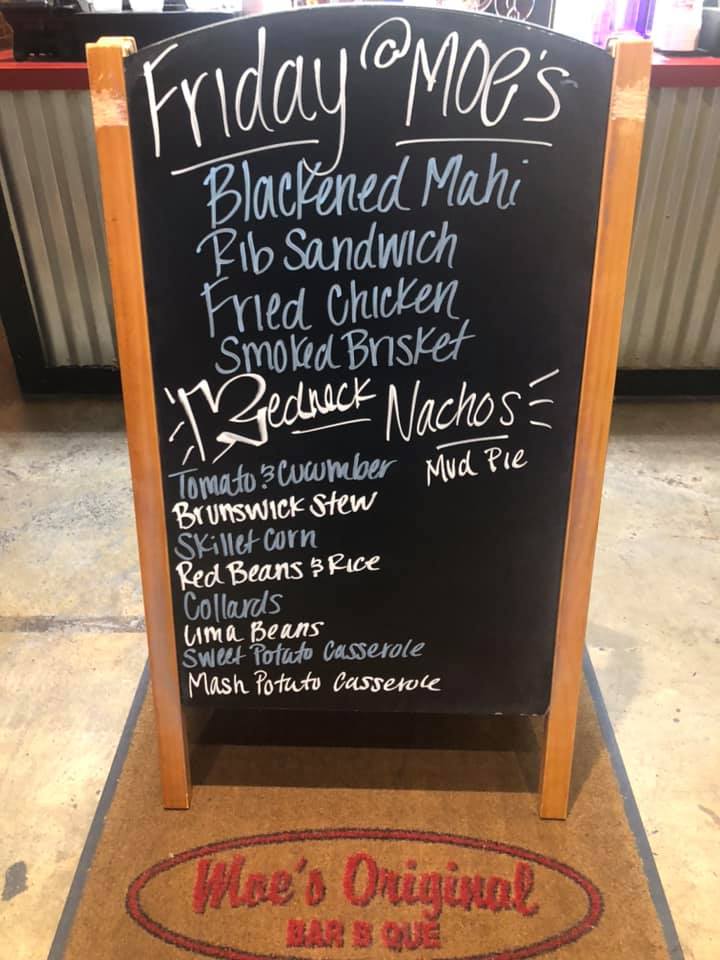 Friday @ Moe's
Blackened Mahi
Rib Sandwich
Fried Chicken
Smoked Brisket
Redneck Nachos
Tomato & Cucumber
Mud Pie
Brunswick Stew
Skillet Corn
Red Beans & Rice
Collards
Lima Beans
Sweet Potato Casserole
Mash Potato Casserole
Moe's Original
BAR B QUE